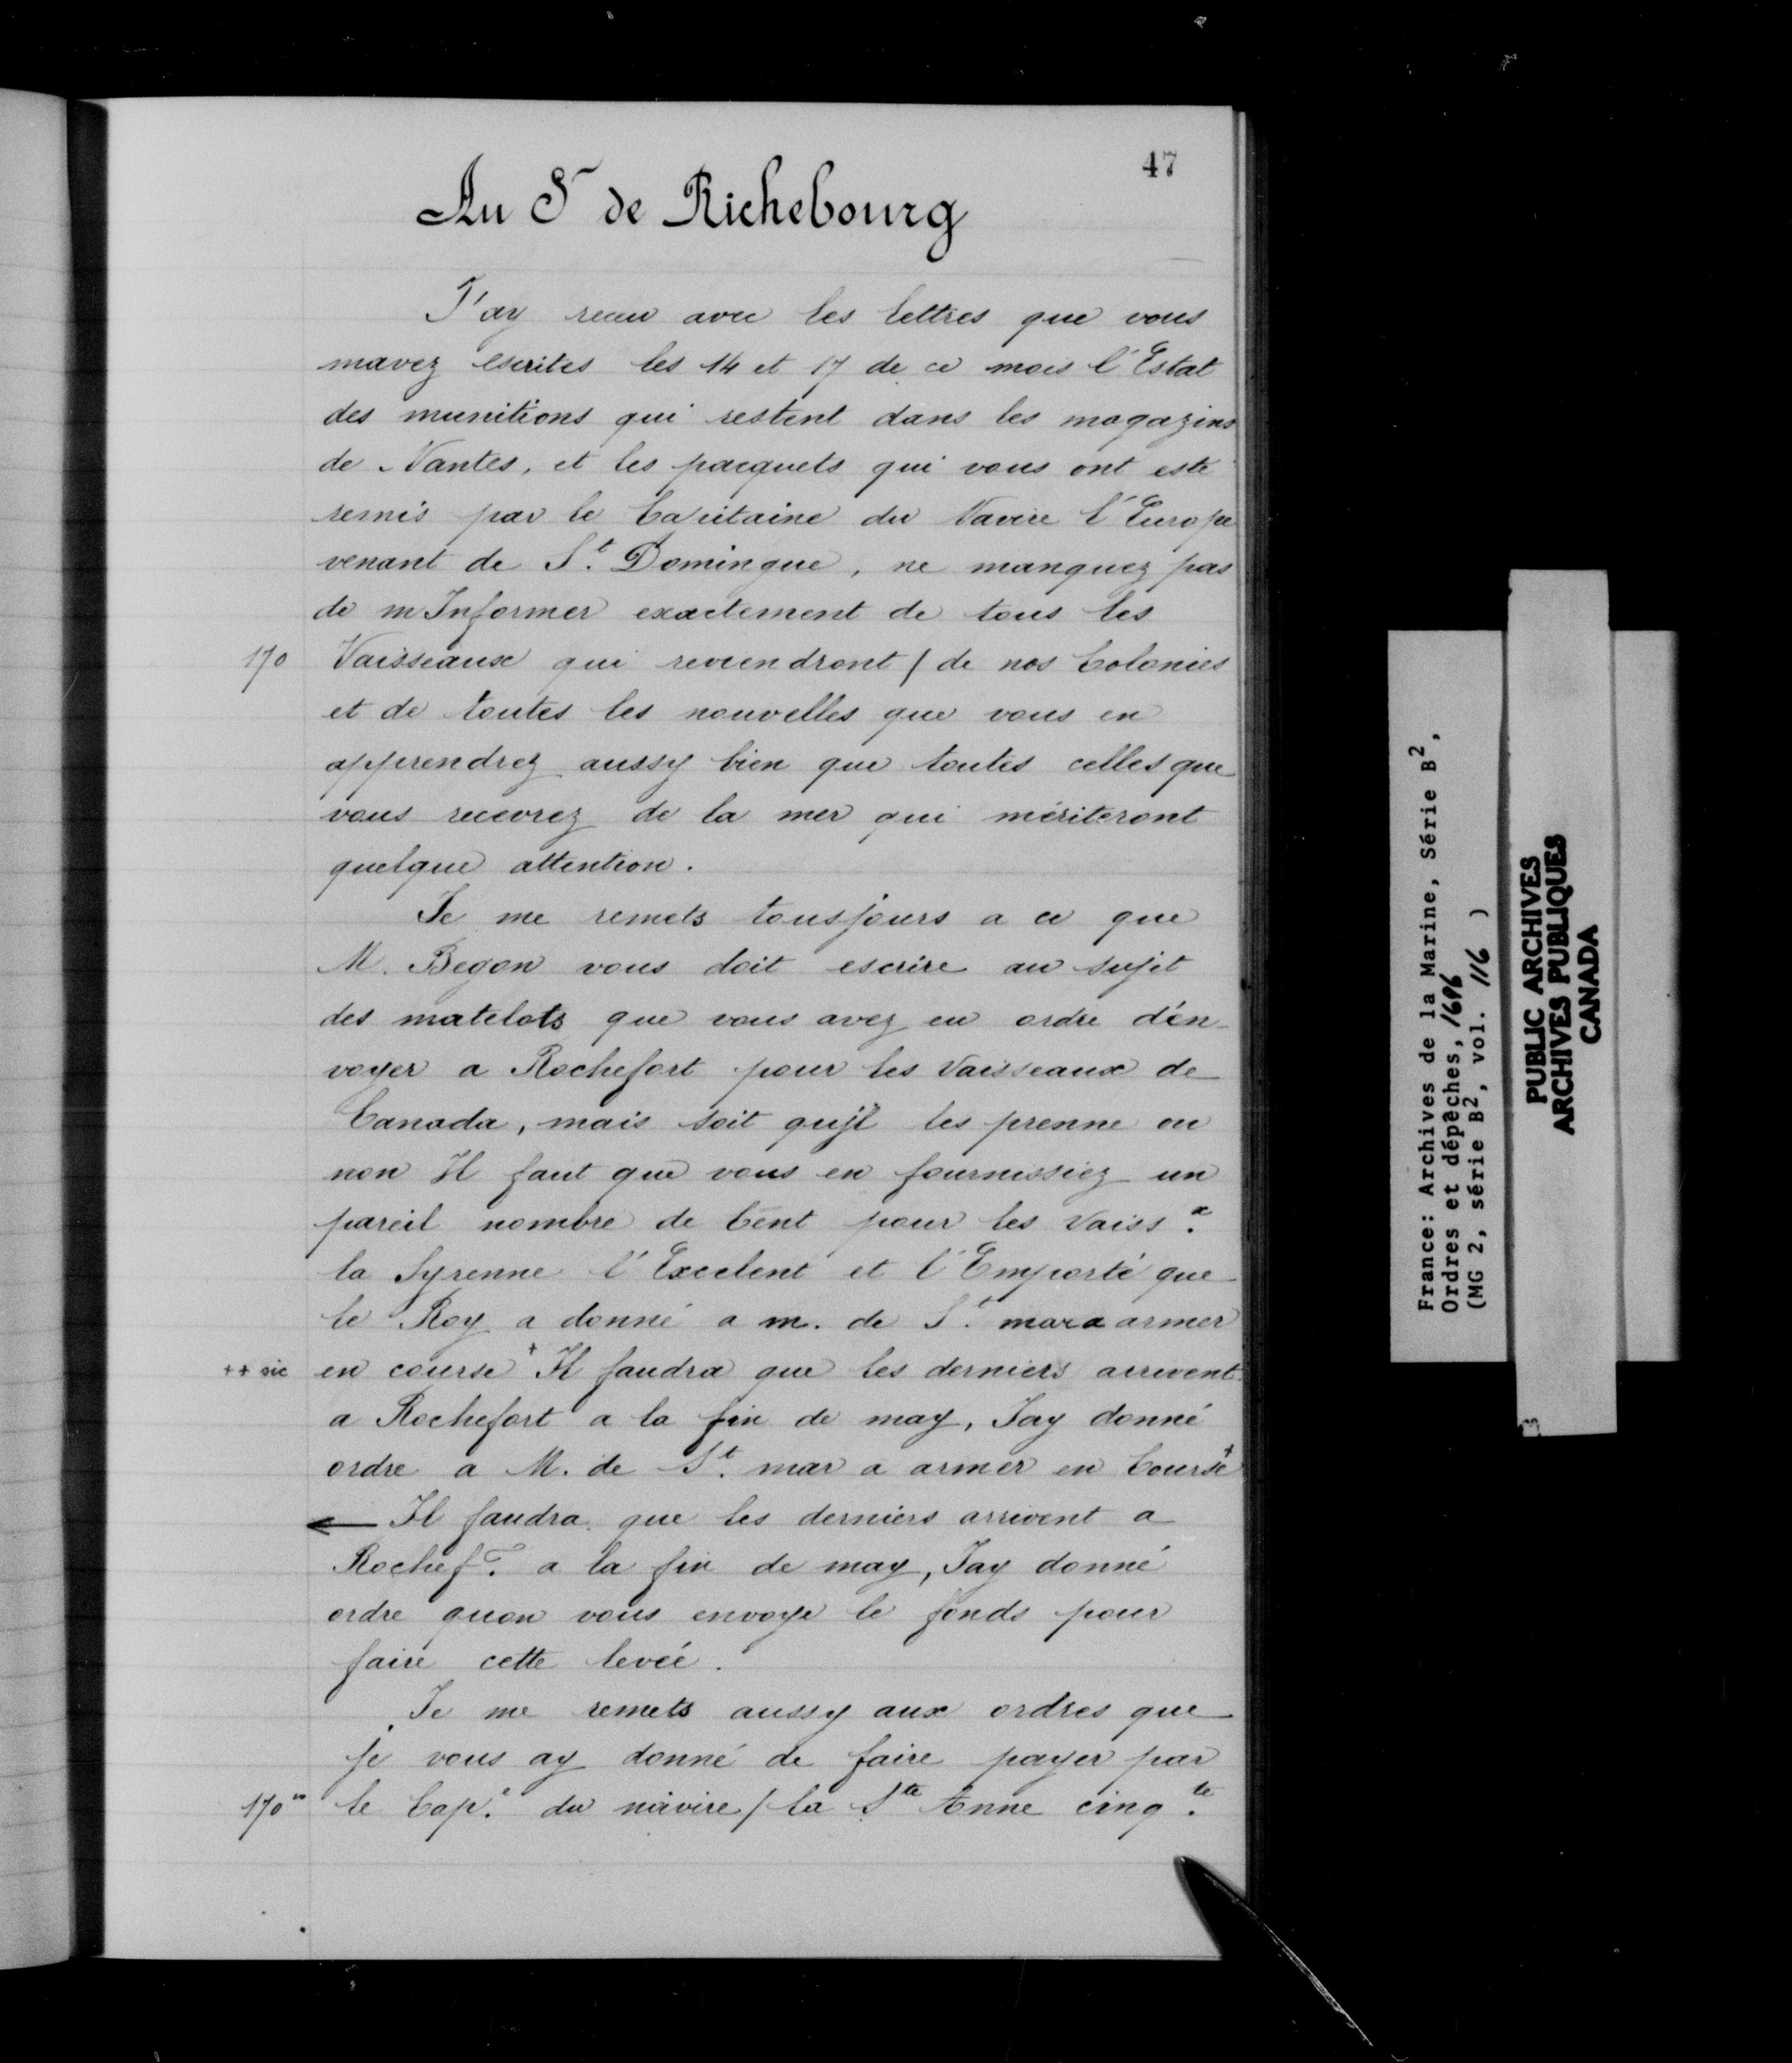 47
Au Sr de Richebourg
J'ay receu avec les lettres que vous
mavez escrites les 14 et 17 de ce mois l'Estat
des munitions qui restent dans les magazins
de Nantes, et les pacquets qui vous ont esté
remis par le Capitaine du Navire l'Europe
venant de St. Domingue, ne manquez pas
de m Informer exactement de tous les
170 Vaisseaux qui reviendront / de nos Colonies
et de toutes les nouvelles que vous en
apprendrez aussy bien que toutes celles que
vous recevrez de la mer qui mériteront
quelque attention.
Je me remets tousjours a ce que
M. Begon vous doit escrire au sujet
des matelots que vous avez eu ordre d'en-
voyer a Rochefort pour les Vaisseaux de
Canada, mais soit qu'jl les prenne ou
non Il faut que vous en fournissiez un
pareil nombre de Cent pour les Vaiss.x
la Syrenne l'Excelent et l'Emporté que
le Roy a donné a m. de St. mar a armer
++ sic en course + Il faudra que les derniers arrivent
a Rochefort a la fin de may, Jay donné
ordre a M. de St. mar a armer en Course +
← Il faudra que les derniers arrivent a
Rochef.t a la fin de may, Jay donné
ordre quon vous envoye le fonds pour
faire cette levée.
Je me remets aussy aux ordres que
je vous ay donné de faire payer par
170vo le Cap.e du navire / la Ste Anne cinq.te
France: Archives de la Marine, Série B2,
Ordres et dépêches, 1696
(MG 2, série B2, vol. 116 )
PUBLIC ARCHIVES
ARCHIVES PUBLIQUES
CANADA